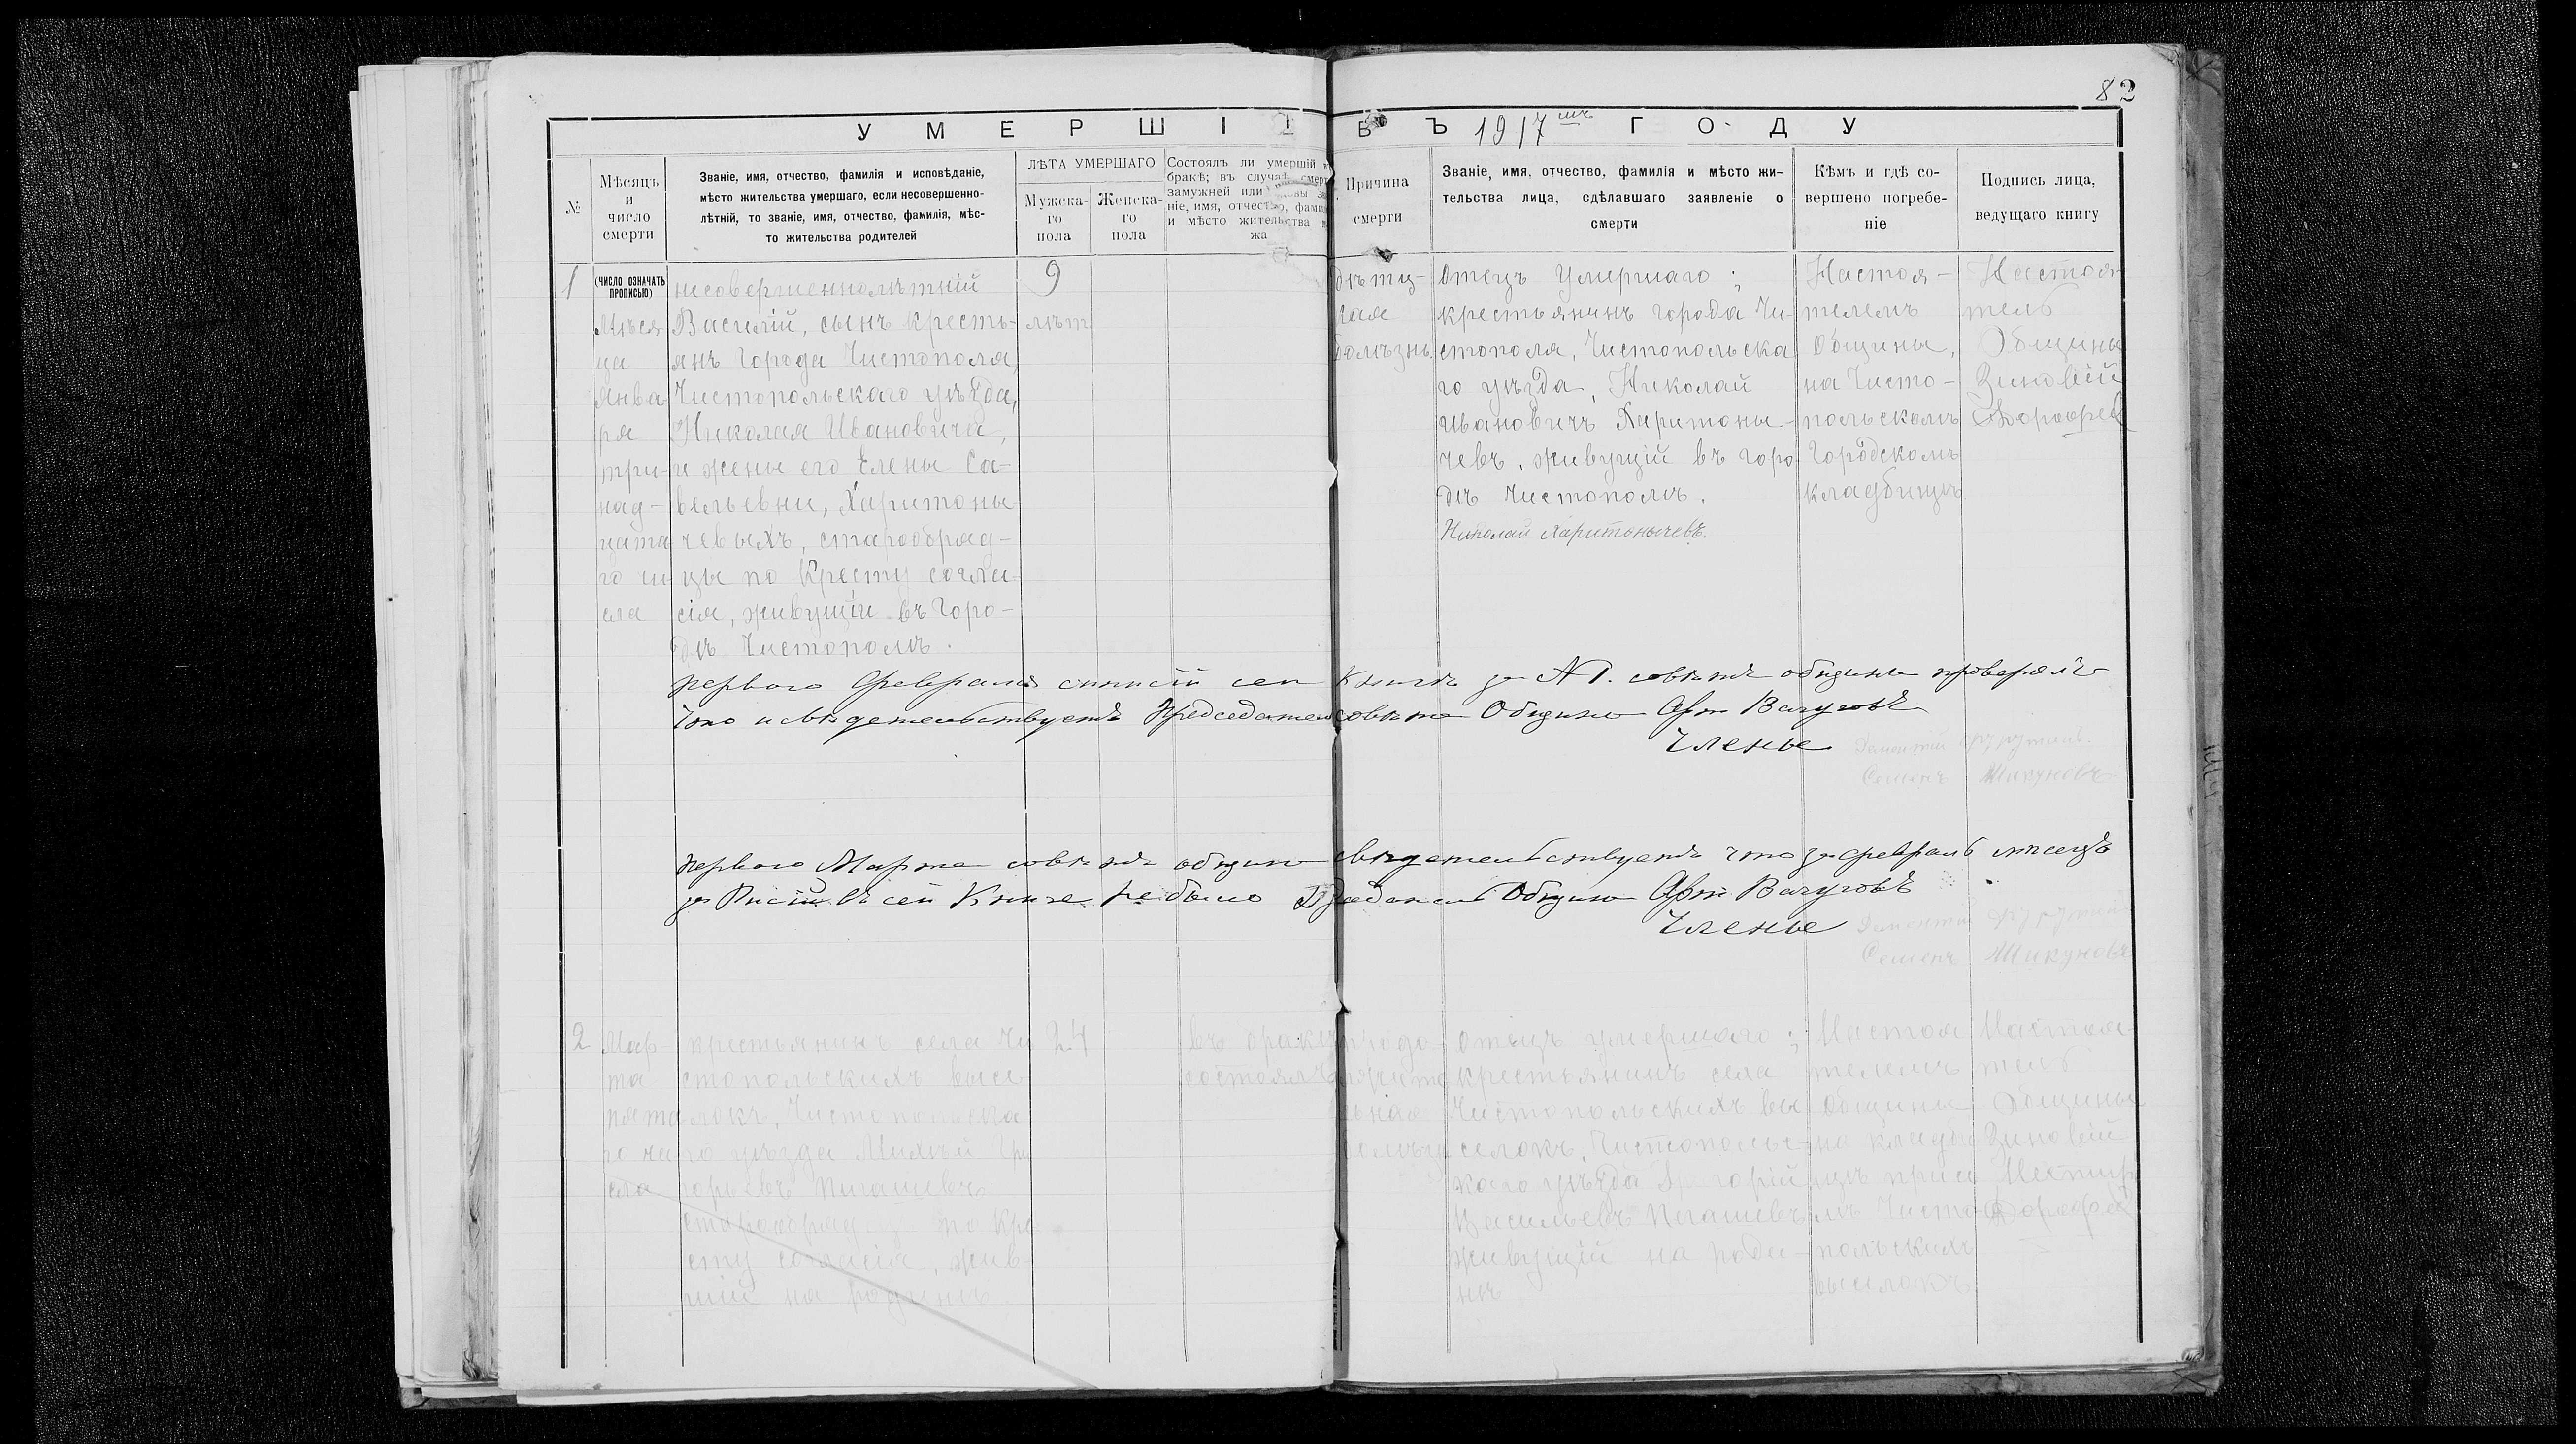 82
УМЕРШІ
ВЪ 1917 мъ ГОДУ
№
Мѣсяцъ
и
число
смерти
Званіе, имя, отчество, фамилія и исповѣданіе,
мѣсто жительства умершаго, если несовершенно-
лѣтній, то званіе, имя, отчество, фамилія, мѣс-
то жительства родителей
ЛѢТА УМЕРШАГО
Мужска-
го
пола
Женска-
го
пола
Состоялъ ли умершій въ
бракѣ; въ случаѣ смерт
замужней или вдовы зва
ніе, имя, отчество, фамил
и мѣсто жительства м
жа
Причина
смерти
Званіе, имя, отчество, фамилія и мѣсто жи-
тельства лица, сдѣлавшаго заявленіе о
смерти
Кѣмъ и гдѣ со-
вершено погребе-
ніе
Подпись лица,
ведущаго книгу
1
(ЧИСЛО ОЗНАЧАТЬ
ПРОПИСЬЮ)
Мѣся
ца
Янва
ря
три-
над-
цата
го чи
сла
несовершеннолѣтній
Василій, сынъ кресть-
янъ города Чистополя,
Чистопольскаго уѣзда,
Николая Ивановича,
и жены его Елены Са-
вельевны, Харитоны
чевыхъ, старообряд-
цы по Кресту согла-
сія, живущіи въ Горо-
дѣ Чистополѣ.
9
лѣт.
дѣтц-
кая
болѣзнь.
Отецъ Умершаго ;
крестьянинъ города Чи-
стополя, Чистопольска
го уѣзда, Николай
Ивановичъ Харитоны-
чевъ, живущій въ горо
дѣ Чистополѣ.
Николай Харитонычевъ.
Настоя-
телемъ
Общины,
на Чисто-
польскомъ
Городскомъ
кладбищѣ
Настоя-
тель
Общины
Зиновій
Дорофеев
первого Февраля списій сеи Книгѣ за № 1. совѣтъ общины проверялъ
Что и свѣдетельствуетъ Председатель совѣта Общины Арт Вачуговъ
Члены Дементій
Семенъ Шикуновъ
первого Марта совѣтъ общины свѣдетельствуетъ что за февраль мѣсецъ
за Писій въ сеи Книге не было Председатель Общины Арт Вачуговъ
Члены Дементій
Семенъ Шикуновъ
2
Мар-
та
пята
го чи
сла
крестьянинъ села Чи
стопольскихъ высе
локъ, Чистопольска
го уѣзда Михѣй Гри
горьевъ Пигашевъ
старообрядец по Кре
сту согласія, жив-
шій на родинѣ
24
въ браки
состоялъ
продо
лжите
льная
болѣзн
Отецъ умершаго ;
крестьянинъ села
Чистопольскихъ вы
селокъ, Чистопольс-
каго уѣзда Григорій
Васильевъ Пигашевъ
живущій на роди-
нѣ
Настоя
телемъ
Общины
на кладби
щѣ при се
лѣ Чисто
польскихъ
выселокъ
Настоя-
тель
Общины
Зиновій
Нестир
Дорофеев